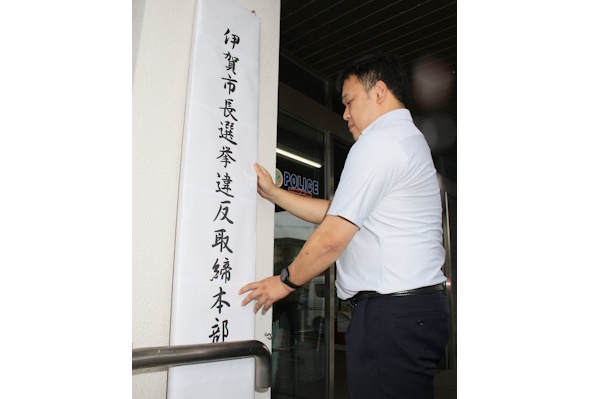 伊賀市長選挙違反取締本部
POLICE